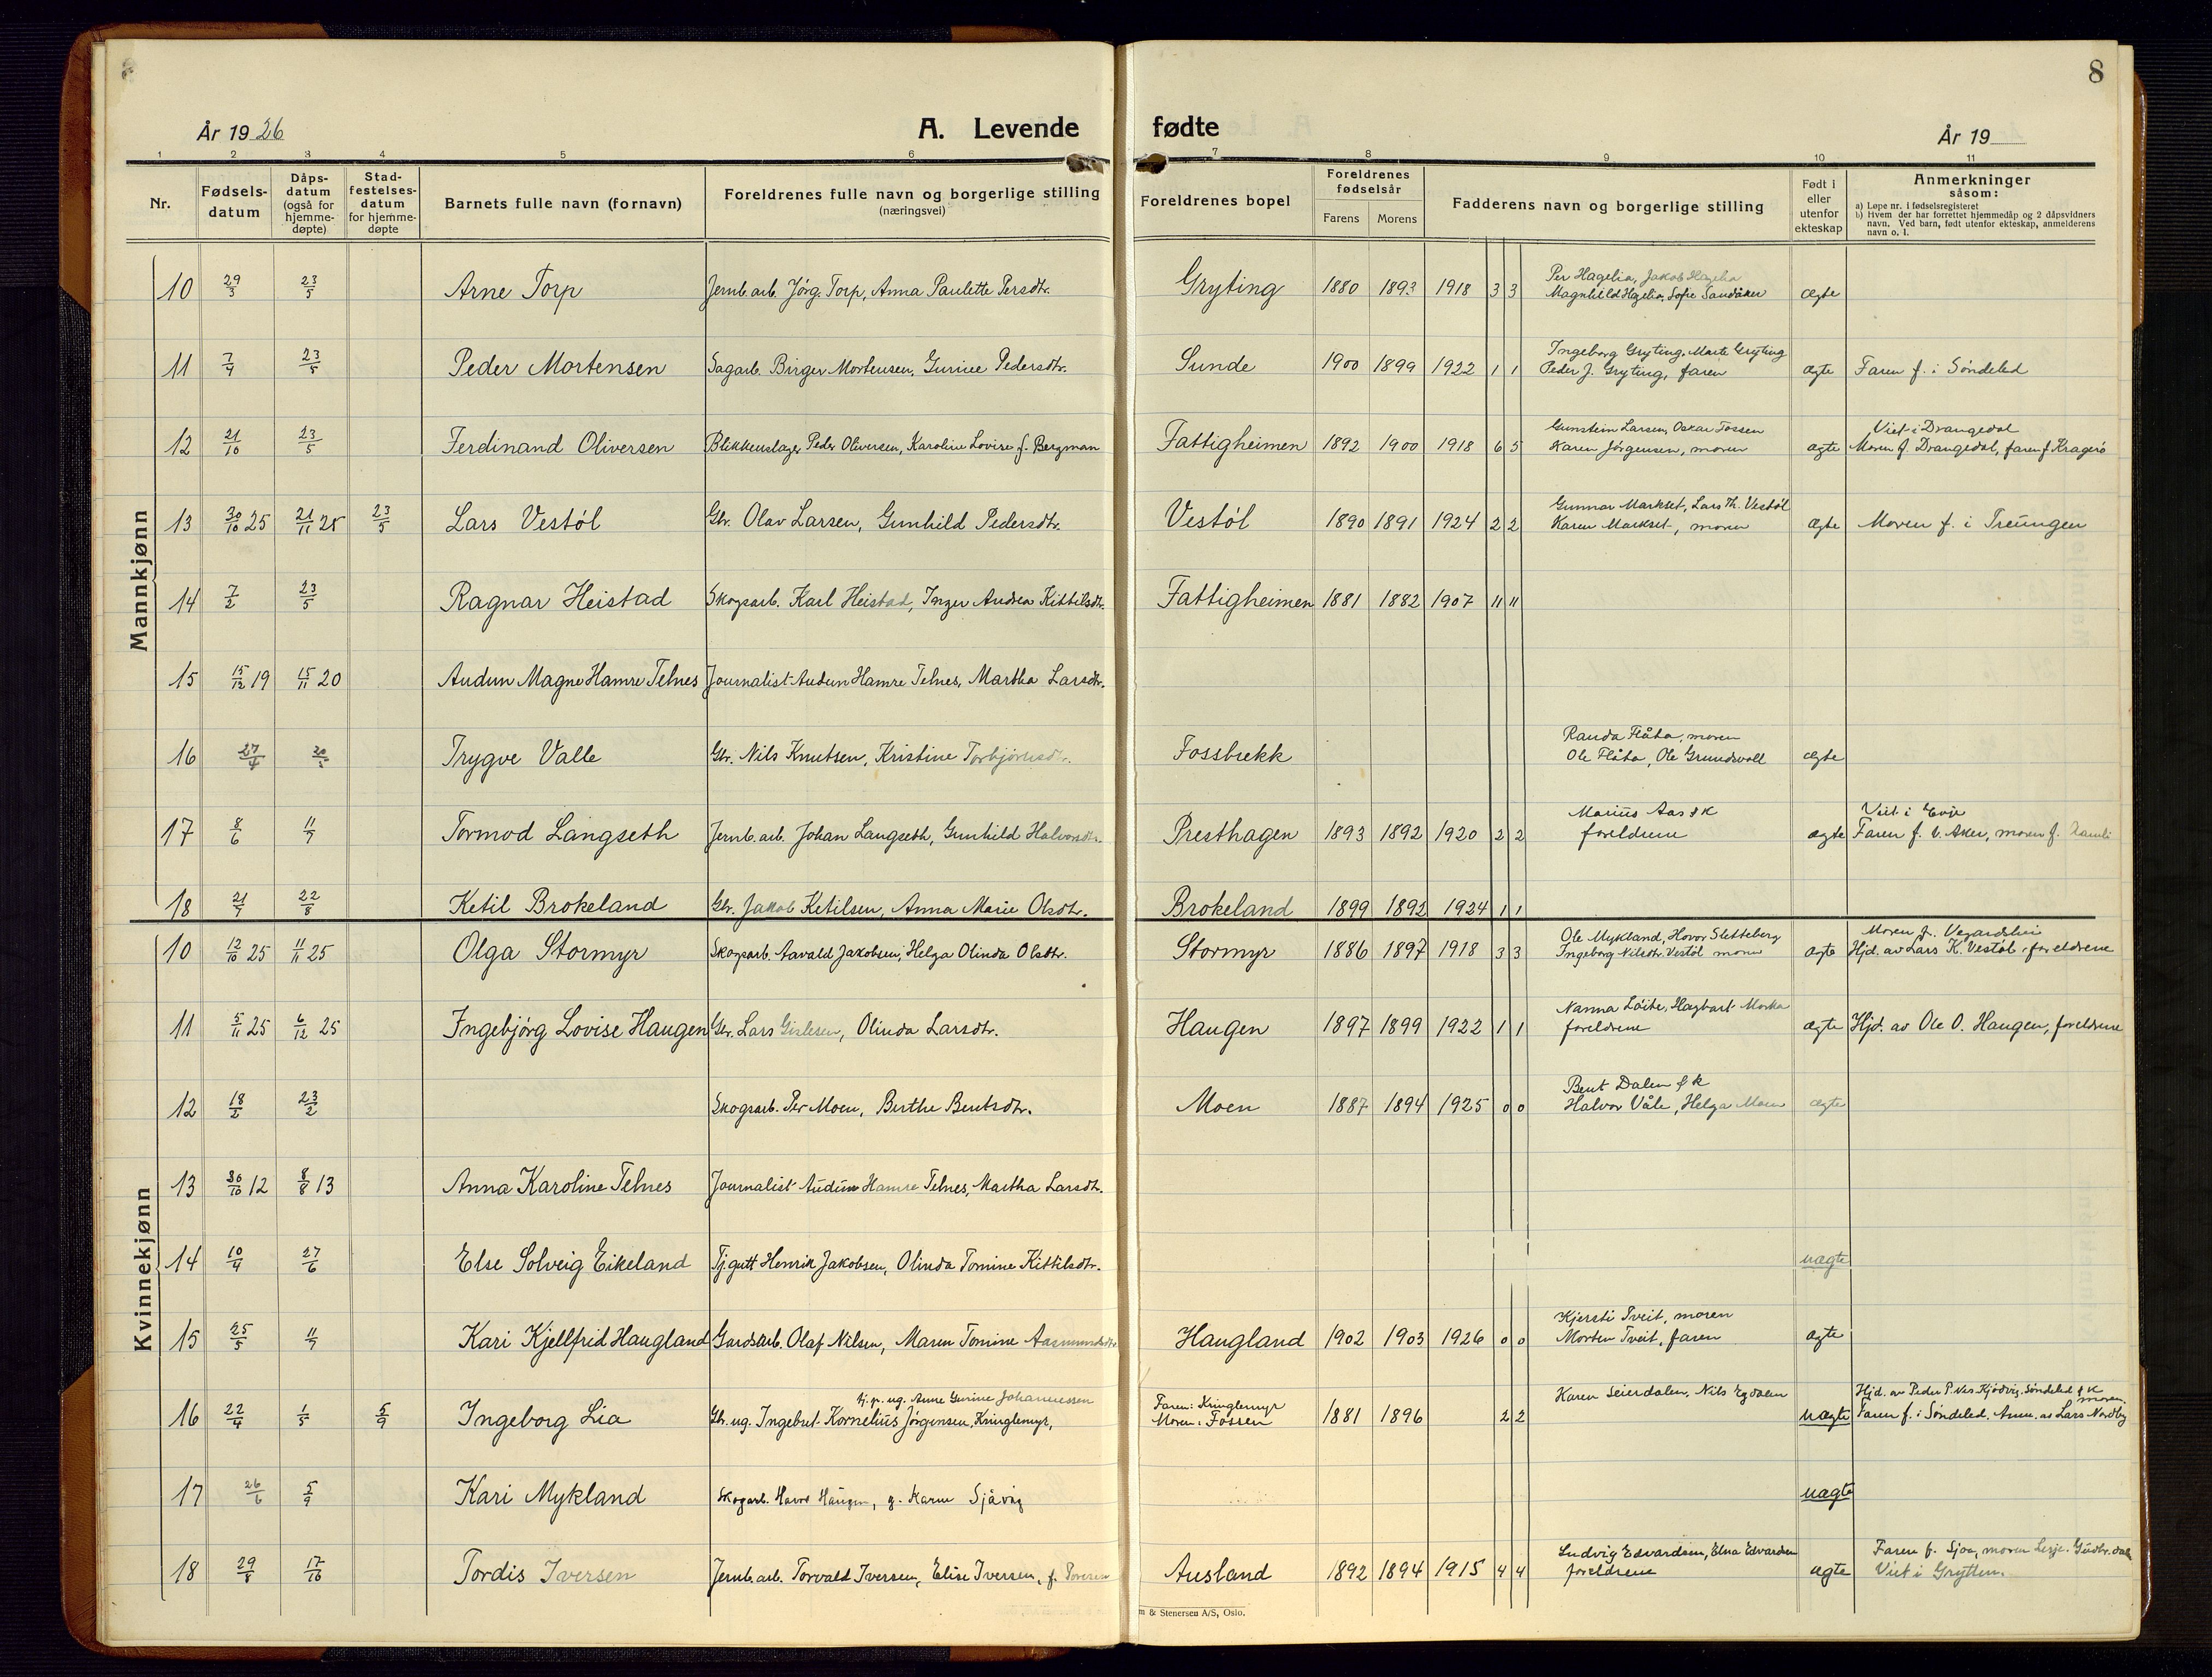 8
År 1926
A. Levende fødte
År 19
1 2 3 4 5 6 7 8 9 10 11
Nr.
Fødsels-
datum
Dåps-
datum
(også for
hjemme-
døpte)
Stad-
festelses-
datum
for hjemme-
døpte
Barnets fulle navn (fornavn)
Foreldrenes fulle navn og borgerlige stilling
(næringsvei)
Foreldrenes bopel
Foreldrenes
fødselsår
Farens Morens
Fadderens navn og borgerlige stilling
Født i
eller
utenfor
ekteskap
Anmerkninger
såsom:
a) Løpe nr. i fødselsregisteret
b) Hvem der har forrettet hjemmedåp og 2 dåpsvidners
navn. Ved barn, født utenfor ekteskap, anmelderens
navn o. l.
Mannkjønn
10 29/3 23/5 Arne Torp Jernb. arb. Jörg. Torp, Anna Paulette Persdtr. Gryting 1880 1893 1918 3 3 Per Hagelia, Jakob Hagelia
Magnhild Hagelia, Sofie Sandåker ægte
11 7/4 23/5 Peder Mortensen Sagarb. Birger Mortensen, Gurine Pedersdtr. Sunde 1900 1899 1922 1 1 Ingeborg Gryting, Marte Gryting
Peder J. Gryting, faren ægte Faren f. i Söndeled
12 21/10 23/5 Ferdinand Oliversen Blikkenslager Peder Oliversen, Karoline Lovise f. Bergman Fattigheimen 1892 1900 1918 6 5 Gunstein Larsen, Oskar Tossen
Karen Jörgensen, moren ægte Viet i Drangedal
Moren f. Drangedal, faren f. Kragerö
13 30/10 25 21/11 25 23/5 Lars Vestöl Gbr. Olav Larsen, Gunhild Pedersdtr. Vestöl 1890 1891 1924 2 2 Gunnar Markset, Lars Th. Vestöl
Karen Markset, moren ægte Moren f. i Treungen
14 7/2 23/5 Ragnar Heistad Skogsarb. Karl Heistad, Inger Andrea Kittilsdtr. Fattigheimen 1881 1882 1907 11 11
15 15/12 19 15/11 20 Audun Magne Hamre Telnes Journalist Audun Hamre Telnes, Martha Larsdtr.
16 27/4 Trygve Valle Gbr. Nils Knutsen, Kristine Torbjörnsdtr. Fossbekk Randa Flåta, moren
Ole Flåta, Ole Grundsvoll ægte
17 8/6 11/7 Tormod Langseth Jernb. arb. Johan Langseth, Gunhild Halvorsdtr. Presthagen 1893 1892 1920 2 2 Marius Aas & k
foreldrene ægte Viet i Evje
Faren f. V. Aker, moren f.
18 21/7 22/8 Ketil Brokeland Gbr. Jakob Ketilsen, Anna Marie Olsdtr. Brokeland 1899 1892 1924 1 1
Kvinnekjønn
10 12/10 25 11/11 25 Olga Stormyr Skogsarb. Aavald Jakobsen, Helga Olinda Olsdtr. Stormyr 1886 1897 1918 3 3 Ole Mykland, Hovor Sletteberg
Ingeborg Nilsdtr. Vestöl moren ægte Moren f. Vegardshei
Hjd. av Lars K. Vestöl, foreldrene
11 5/11 25 6/12 25 Ingebjörg Lovise Haugen Gbr. Lars Gislesen, Olinda Larsdtr. Haugen 1897 1899 1922 1 1 Nanna Löite, Hagbart Morka
foreldrene ægte Hjd. av Ole O. Haugen, foreldrene
12 18/2 23/2 Skogsarb. Per Moen, Berthe Bentsdtr. Moen 1887 1894 1925 0 0 Bent Dalen & k
Halvor Våle, Helga Moen ægte
13 30/10 12 8/8 13 Anna Karoline Telnes Journalist Audun Hamre Telnes, Martha Larsdtr.
14 10/4 27/6 Else Solveig Eikeland Tj.gutt Henrik Jakobsen, Olinda Tomine Kittilsdtr. uægte
15 25/5 11/7 Kari Kjellfrid Haugland Gardsarb. Olaf Nilsen, Maren Tomine Aasmundsdtr. Haugland 1902 1903 1926 0 0 Kjersti Tveit, moren
Morten Tveit, faren ægte
16 22/4 1/5 5/9 Ingeborg Lia tj. p. ug. Anne Gurine Johannessen
Gbr. ug. Ingebret Kornelius Jörgensen, Kringlemyr, Faren: Kringlemyr
Moren: Fossen 1881 1896 2 2 Karen Seierdalen, Nils Egdalen uægte Hjd. av Peder P. Ves Kjödvig, Söndeled & k
moren
Faren f. i Söndeled. Anm. av Lars Nordby
17 26/6 5/9 Kari Mykland Skogarb. Havor Haugen, g. Karen Sjåvåg uægte
18 29/8 17/10 Tordis Iversen Jernb. arb. Torvald Iversen, Elise Iversen, f. Ausland 1892 1894 1915 4 4 Ludvig Edvardsen, Elna Edvardsen
foreldrene ægte Faren f. Sjoa, moren Lesje. Gudbr.dal
Viet i Grytten.
m & Stenersen A/S, Oslo.